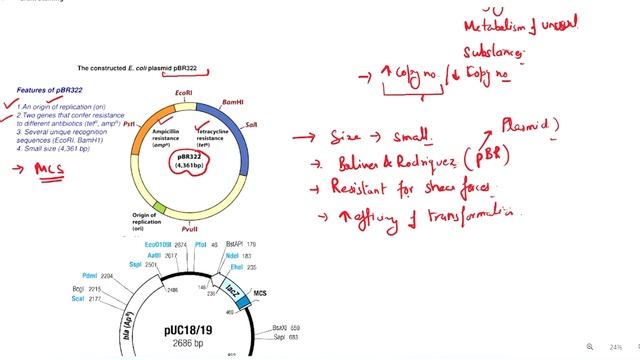 The constructed E. coli plasmid pBR322
Features of pBR322
1 An origin of replication (ori)
2. Two genes that confer resistance
to different antibiotics (tetᴿ, ampᴿ)
3. Several unique recognition
sequences (EcoRI, BamH1)
4. Small size (4,361 bp)
→ MCS
EcoRI
BamHI
SalI
PstI
Ampicillin
resistance
(ampᴿ)
Tetracycline
resistance
(tetᴿ)
pBR322
(4,361bp)
Origin of
replication
(ori)
PvuII
EcoO109I 2674
AatII 2617
SspI 2501
PdmI 2294
BcgI 2215
ScaI 2177
PfoI 46
BstAPI 179
NdeI 183
EheI 235
2486
146
236
lacZ
MCS
469
bla (Apᴿ)
pUC18/19
2686 bp
BsaXI 659
SapI 683
Metabolism of unusual
Substances
→ ↑ Copy no. / ↓ Copy no
→ Size → small
Plasmid)
→ Boliver & Rodriquez (pBR)
→ Resistant for shear forces
→ ↑ efficiency of transformation
24%